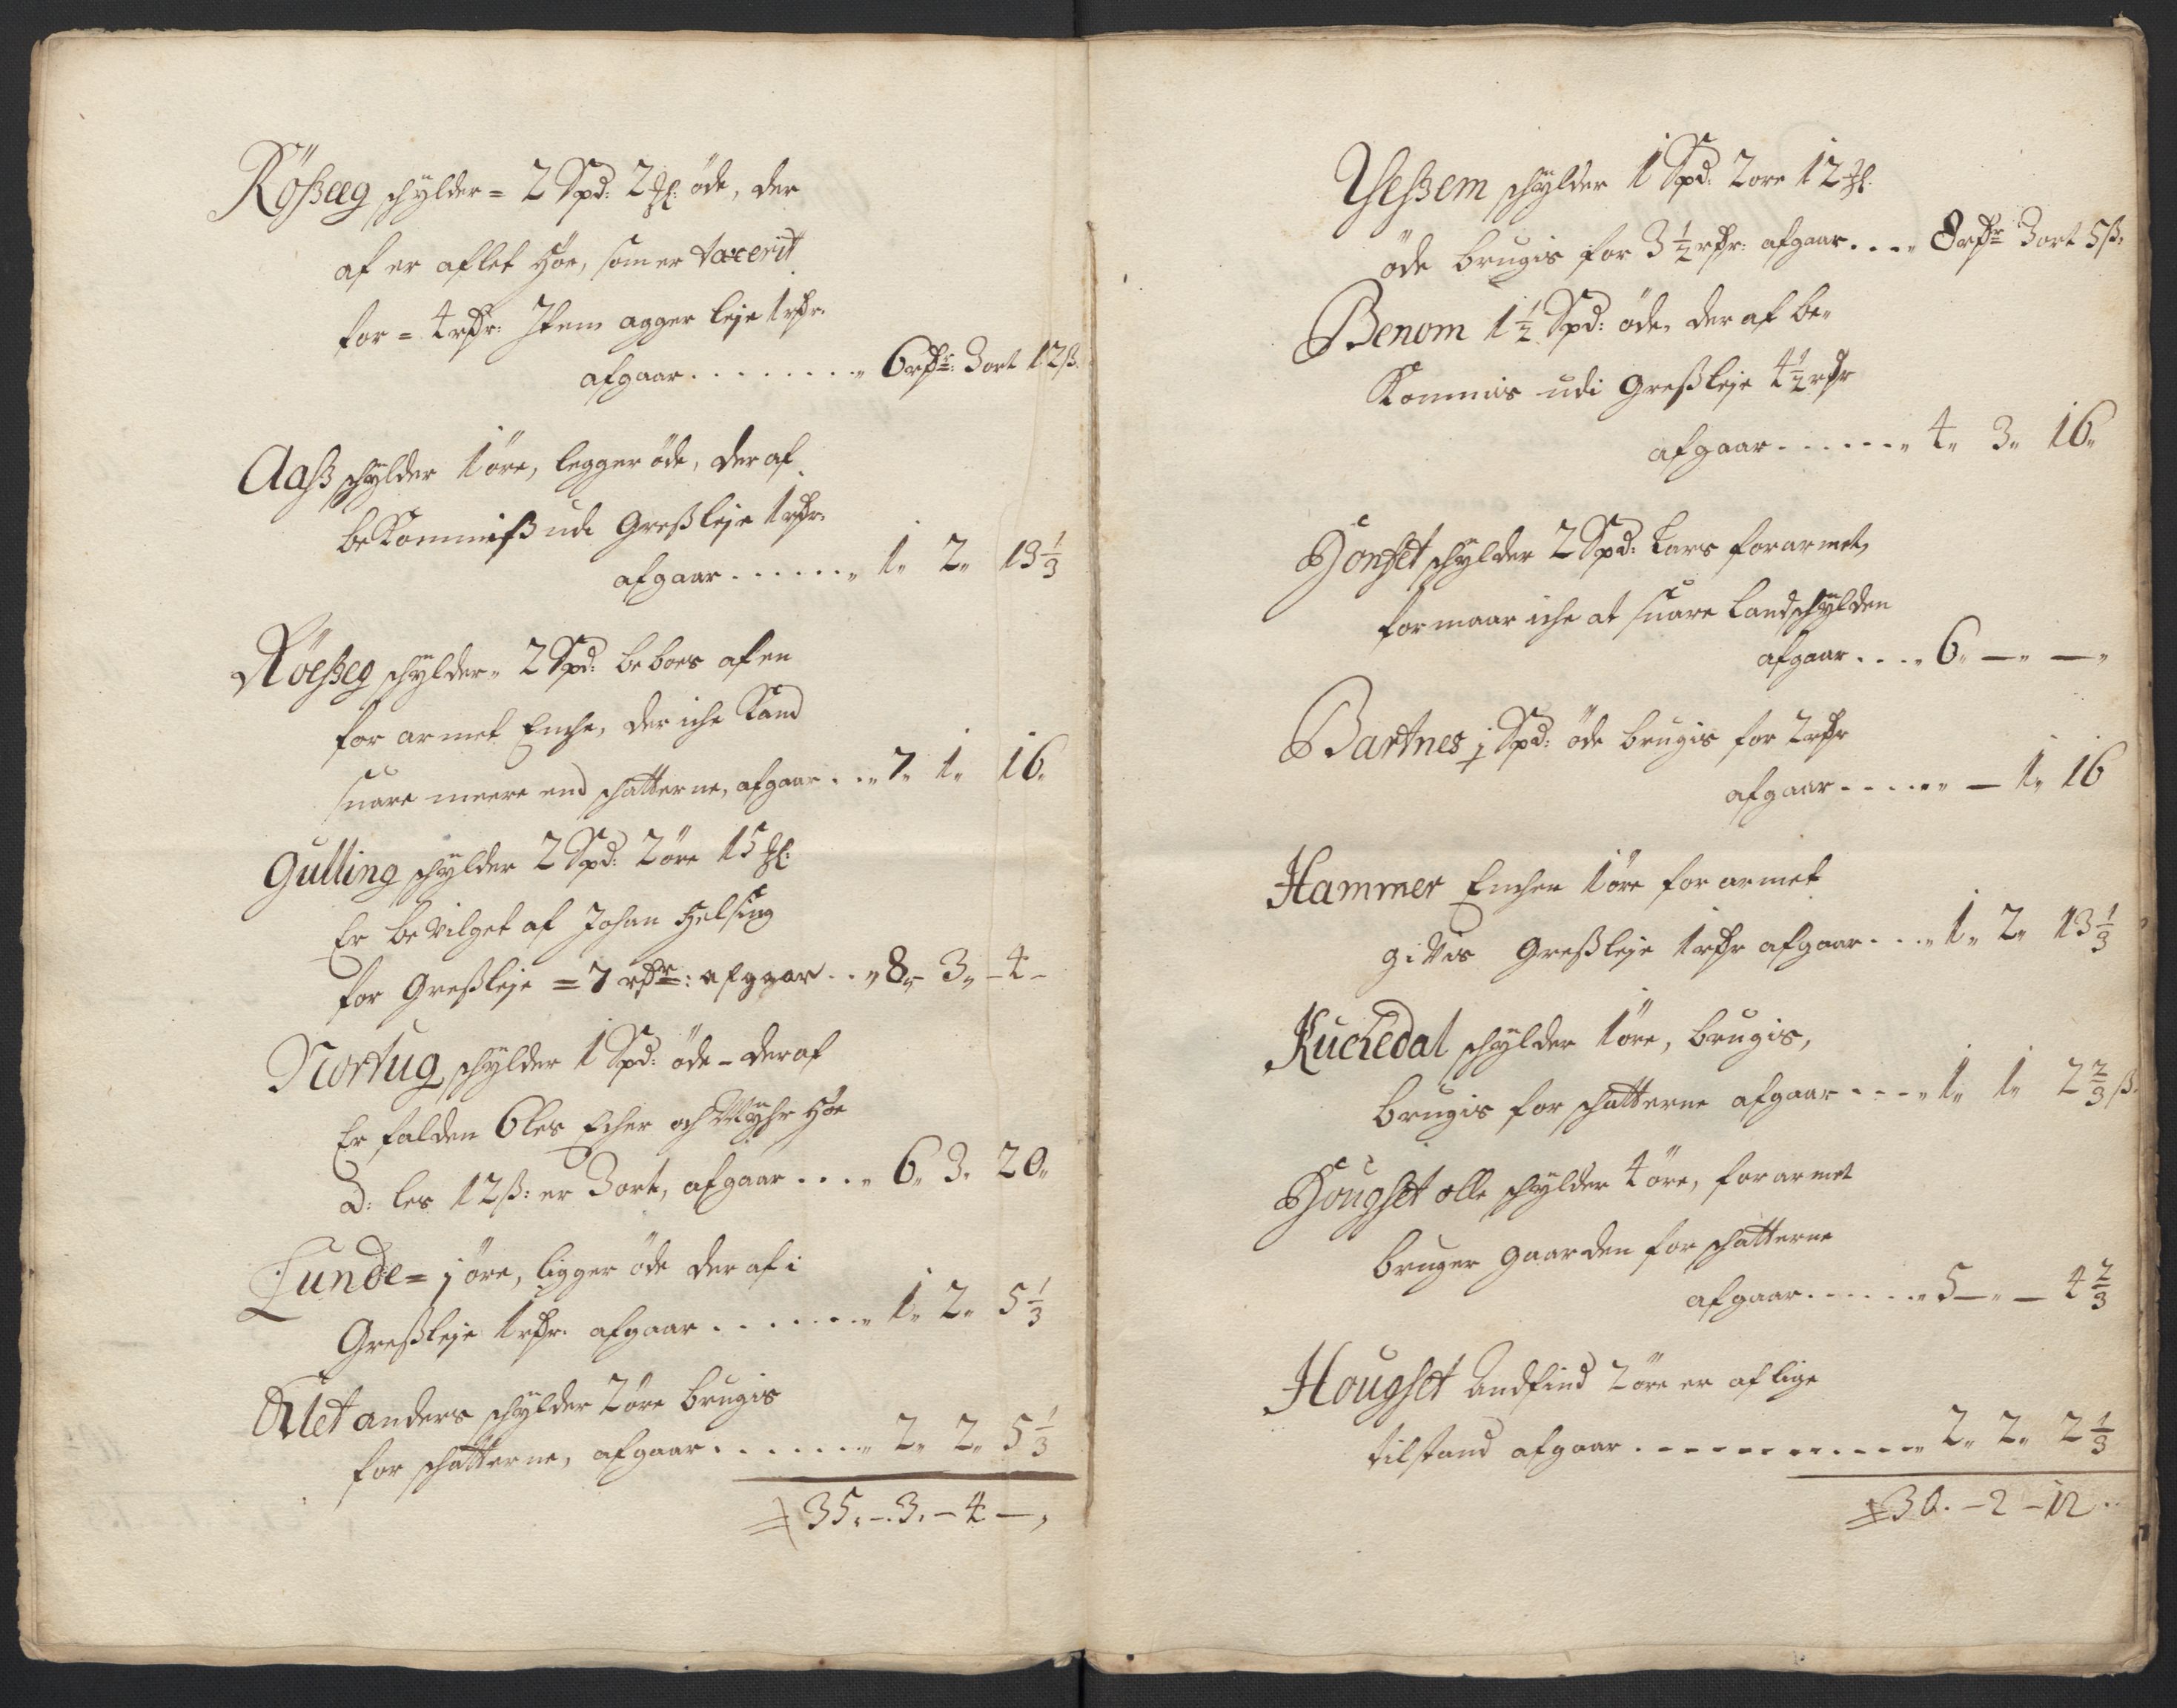 Rößæg schylder = 2 Spd: 2 Ml: öde, der
af er aflet Höe, som er taxerit
for = 4 rdr: Item agger leje 1 rdr.
afgaar . . . . . . . . „ 6 rdr: 3 ort 12 ß
Aaß schylder 1 öre, legger öde, der af
beKommiß udi Greßleje 1 rdr.
afgaar . . . . . . „ 1„ 2„ 13 1/3
Röeßeg schylder „ 2 Spd: beboes af en
for armet Enche, der iche Kand
suare meere end schatterne, afgaar . . „ 7„ 1„ 16„
Gulling schylder 2 Spd: 2 öre 15 Ml:
Er beVilget af Johan Helsing
for Greßleje = 7 rdr: afgaar . . „ 8„ 3„ – 4 –
Nortug schylder 1 Spd: öde – der af
Er falden 6 les Echer och Myhr Höe
à: les 12 ß: er 3 ort, afgaar . . . . „ 6„ 3„ 20„
Lunde = 1 öre, ligger öde der af i
Greßleje 1 rdr. afgaar . . . . . . . „ 1„ 2„ 5 1/3
Anders schylder 2 öre brugis
for schatterne, afgaar . . . . . . . „ 2„ 2„ 5 1/3
35. – 3. – 4 –
Yeßem schylder 1 Spd: 2 ore 12 Ml.
öde brugis for 3 1/2 rdr: afgaar . . . „ 8 rdr 3 ort 5 ß„
Benom 1 1/2 Spd: öde, der af be„
Kommis udi Greßleje 4 1/2 rdr
afgaar . . . . . . „ 4„ 3„ 16„
Honset schylder 2 Spd: Lars forarmet,
formaar iche at suare Landschylden
afgaar . . . „ 6„ – „ – „
Bartnes 1 Spd: öde brugis for 2 rdr
afgaar . . . . . . „ – 1„ 16
Hammer Enchen 1 öre for armet
giVis Greßleje 1 rdr afgaar . . . „ 1„ 2„ 13 1/3
Kuchedal schylder 1 öre, brugis,
brugis for schatterne afgaar . . . . „ 1„ 1„ 2 2/3 ß.
Hougset olle schylder 4 öre, forarmet
bruger gaarden for schatterne
afgaar . . . . . . „ 5 – „ – 4 2/3
Hougset Andfind 2 öre er af lige
tilstand afgaar . . . . . . . . . . . . „ 2„ 2„ 2 1/3
30. – 2 – 12 . .